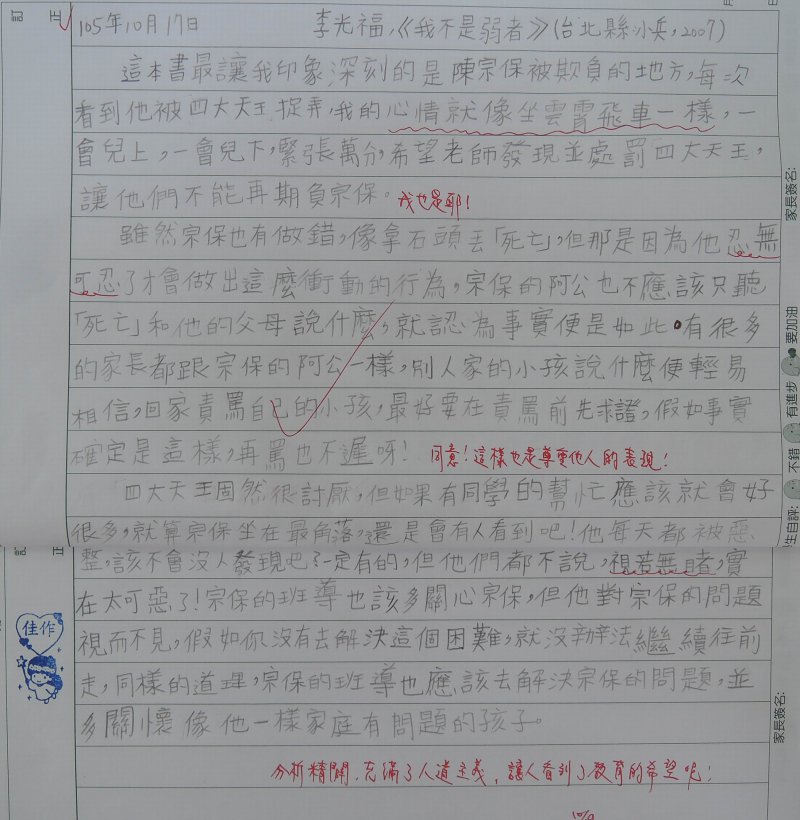 訂
正
105年10月17日 李光福,《我不是弱者》(台北縣:小兵,2007)
這本書最讓我印象深刻的是陳宗保被欺負的地方,每次
看到他被四大天王捉弄,我的心情就像坐雲霄飛車一樣,一
會兒上,一會兒下,緊張萬分,希望老師發現並處罰四大天王,
讓他們不能再期負宗保。 我也是耶!
雖然宗保也有做錯,像拿石頭丟「死亡」,但那是因為他忍無
可忍了才會做出這麼衝動的行為,宗保的阿公也不應該只聽
「死亡」和他的父母說什麼,就認為事實便是如此。有很多
的家長都跟宗保的阿公一樣,別人家的小孩說什麼便輕易
相信,回家責罵自己的小孩,最好要在責罵前先求證,假如事實
確定是這樣,再罵也不遲呀! 同意!這樣也是尊重他人的表現!
四大天王固然很討厭,但如果有同學的幫忙應該就會好
很多,就算宗保坐在最角落,還是會有人看到吧!他每天都被惡
整,該不會沒人發現吧?一定有的,但他們都不說,視若無睹,實
在太可惡了!宗保的班導也該多關心宗保,但他對宗保的問題
視而不見,假如你沒有去解決這個困難,就沒辦法繼續往前
走,同樣的道理,宗保的班導也應該去解決宗保的問題,並
多關懷像他一樣家庭有問題的孩子。
分析精闢,充滿了人道主義,讓人看到了教育的希望呢!
佳作
家長簽名:
要加油
有進步
不錯
生自評:
家長簽名: